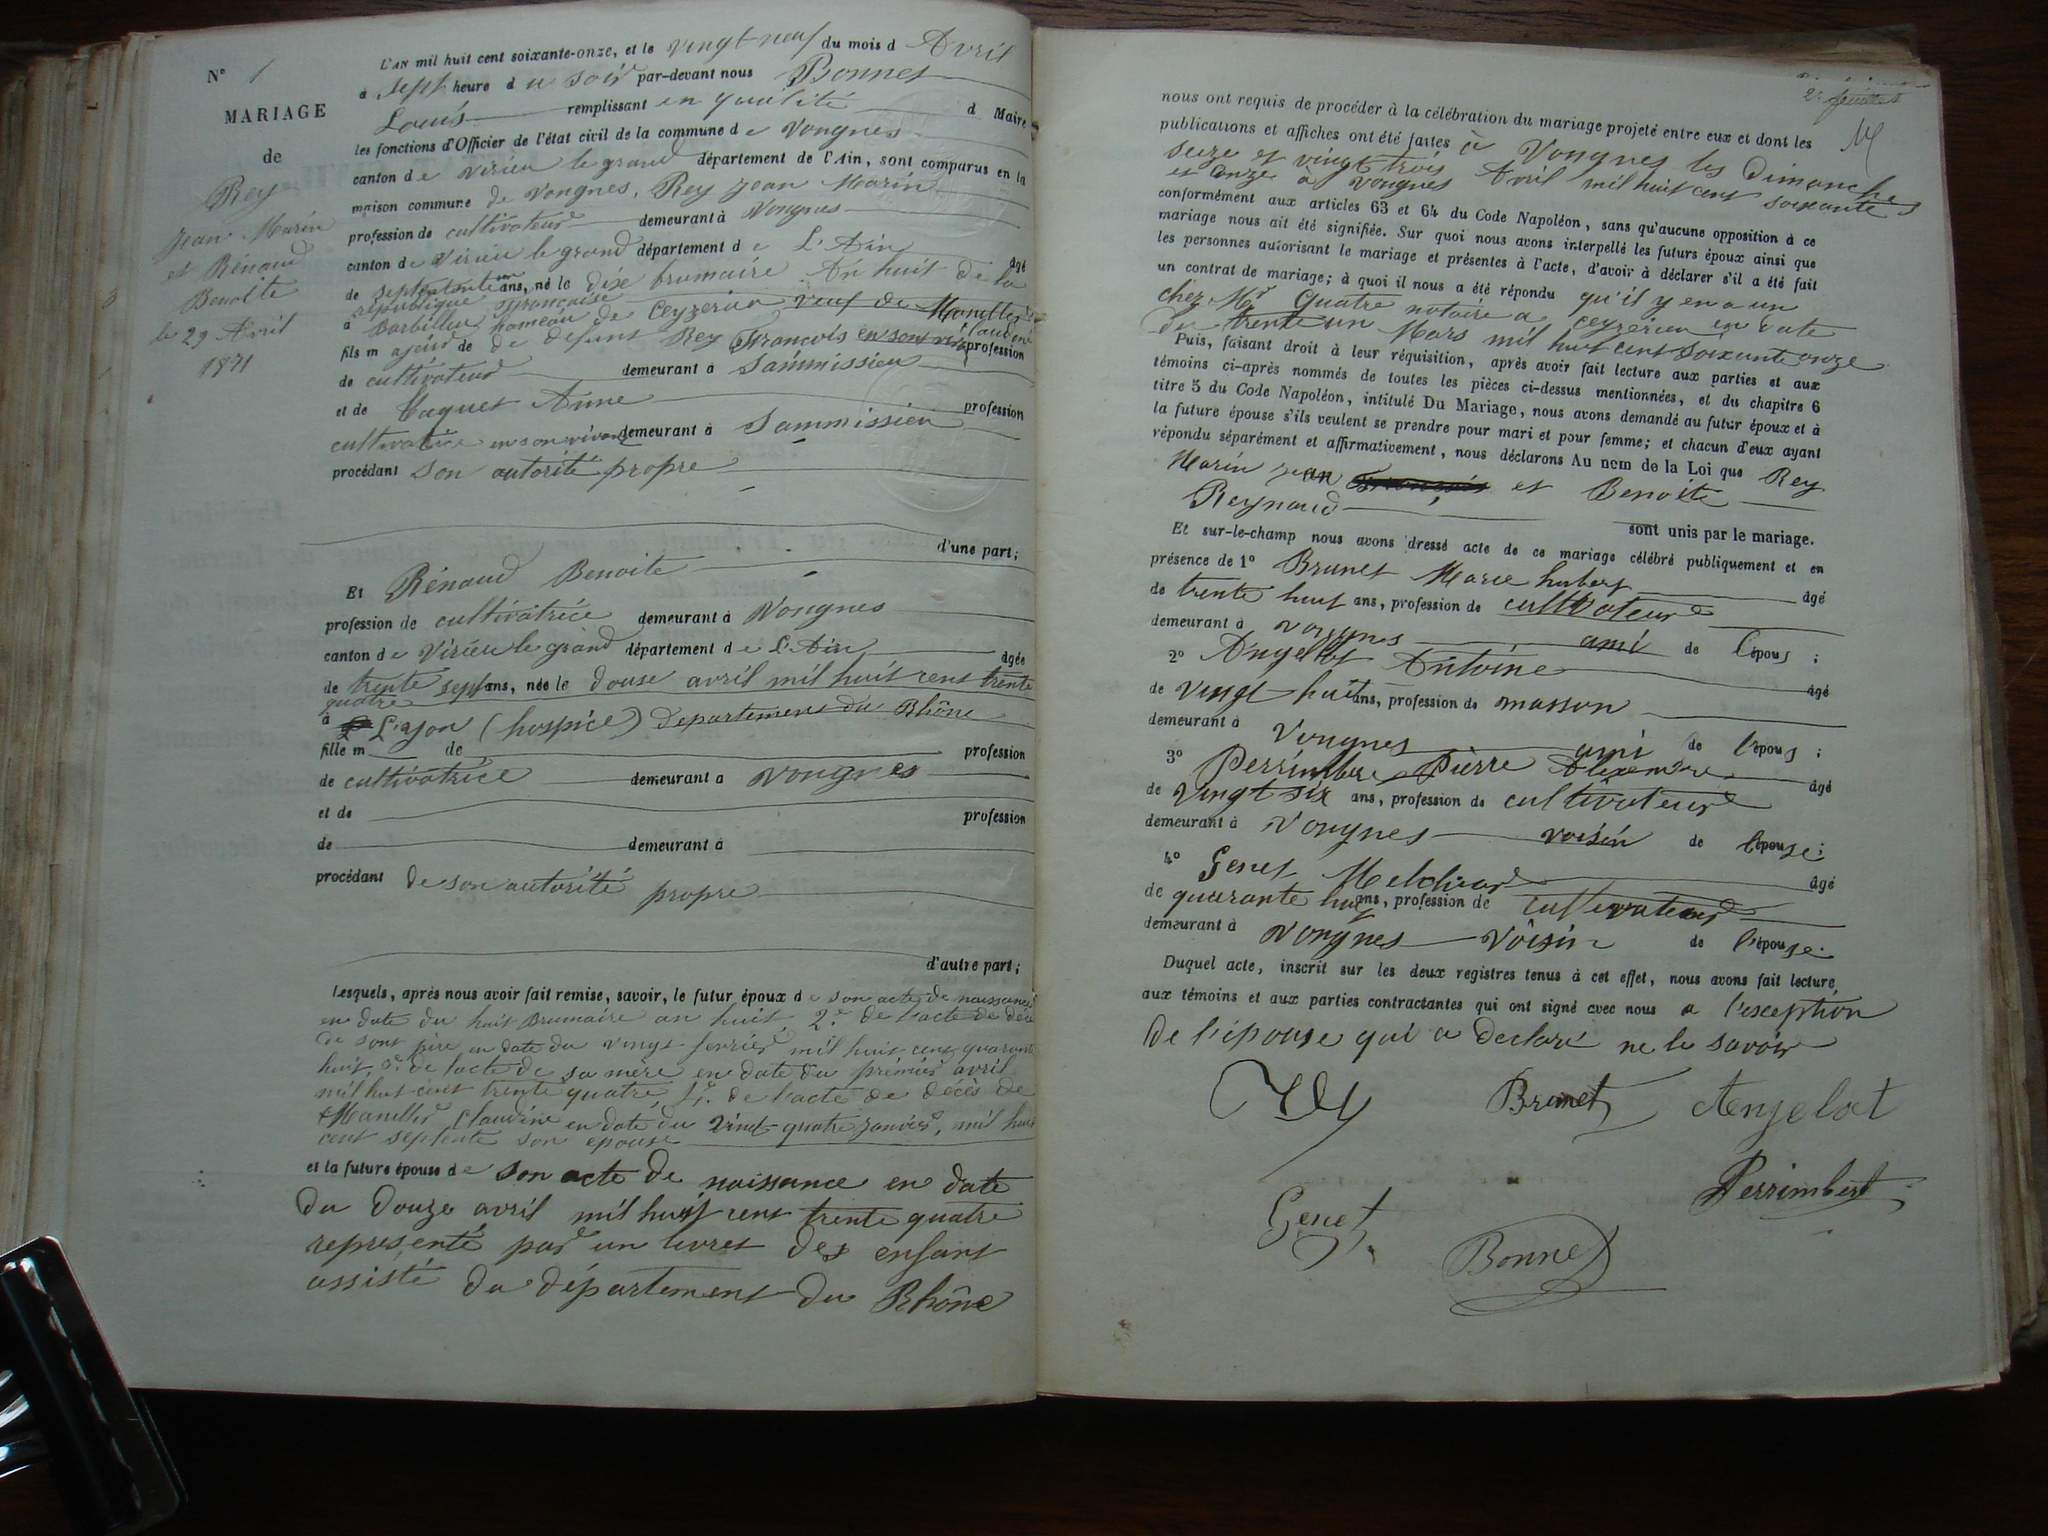 N° 1
MARIAGE
de
Rey
Jean Marin
et Rénaud
Benoite
le 29 Avril
1871
L'AN mil huit cent soixante-onze, et le vingt neuf du mois d Avril
à sept heure d u soir par-devant nous Bonnet
Louis remplissant en qualité d Maire
les fonctions d'Officier de l'état civil de la commune d e Vongnes
canton d e Virieu le grand département de l'Ain, sont comparus en la
maison commune de Vongnes, Rey Jean Marin
profession de cultivateur demeurant à Vongnes
canton d e Virieu le grand département d e L'Ain âgé
de septante un ans, né le dixe brumaire An huit de la
république française
à Barbillieu hameau de Ceyzerieu veuf de Manillier Claudine
fils m ajeur de de defunt Rey François en son viv profession
de cultivateur demeurant à Sammissieu
et de Caquet Anne profession
cultivatrice en son vivant demeurant à Sammissieu
procédant son autorité propre
d'une part;
Et Rénaud Benoite
profession de cultivatrice demeurant à Vongnes
canton d e Virieu le grand département d e L'Ain âgée
de trente sept ans, née le douse avril mil huit cent trente
quatre
à L'ayon (hospice) departement du Rhône
fille m de profession
de cultivatrice demeurant a Vongnes
et de profession
de demeurant à
procédant de son autorité propre
d'autre part;
Lesquels, après nous avoir fait remise, savoir, le futur époux d e son acte de naissance
en date du huit Brumaire an huit, 2° de l'acte de déce
de sont père en date du vingt fevrier mil huit cent quarante
huit, 3° de l'acte de sa mère en date du prémier avril
mil huit cent trente quatre, 4° de l'acte de décès de
Manillier Claudine en date du vingt quatre janvier, mil huit
cent septente son epouse
et la future épouse d e son acte de naissance en date
du douze avril mil huit cent trente quatre
representé par un livret des enfant
assisté du département du Rhône
2e feuillet
nous ont requis de procéder à la célébration du mariage projeté entre eux et dont les
publications et affiches ont été faites à Vongnes les Dimanches
seize et vingt trois Avril mil huit cent soixante
et onze à Vongnes
conformément aux articles 63 et 64 du Code Napoléon, sans qu'aucune opposition à ce
mariage nous ait été signifiée. Sur quoi nous avons interpellé les futurs époux ainsi que
les personnes autorisant le mariage et présentes à l'acte, d'avoir à déclarer s'il a été fait
un contrat de mariage; à quoi il nous a été répondu qu'il y en a un
chez Mr Quatre notaire a ceyzerieu en date
du trente un Mars mil huit cent soixante onze
Puis, faisant droit à leur réquisition, après avoir fait lecture aux parties et aux
témoins ci-après nommés de toutes les pièces ci-dessus mentionnées, et du chapitre 6
titre 5 du Code Napoléon, intitulé Du Mariage, nous avons demandé au futur époux et à
la future épouse s'ils veulent se prendre pour mari et pour femme; et chacun d'eux ayant
répondu séparément et affirmativement, nous déclarons Au nom de la Loi que Rey
Marin jean et Benoite
Reynaud sont unis par le mariage.
Et sur-le-champ nous avons dressé acte de ce mariage célébré publiquement et en
présence de 1° Brunet Marie hubert âgé
de trente huit ans, profession de cultivateur
demeurant à vongnes ami de l'épous ;
2° Angelot Antoine âgé
de vingt huit ans, profession de masson
demeurant à Vongnes ami de l'épous ;
3° Perrimbert Pierre Alexandre âgé
de vingt six ans, profession de cultivateur
demeurant à Vongnes voisin de l'épouse;
4° Genet Melchior âgé
de quarante huit ans, profession de cultivateur
demeurant à Vongnes Voisin de l'épouse.
Duquel acte, inscrit sur les deux registres tenus à cet effet, nous avons fait lecture
aux témoins et aux parties contractantes qui ont signé avec nous a l'exception
de l'épouse qui a declaré ne le savoir
Rey Brunet Angelot
Perrimbert
Genet
Bonnet